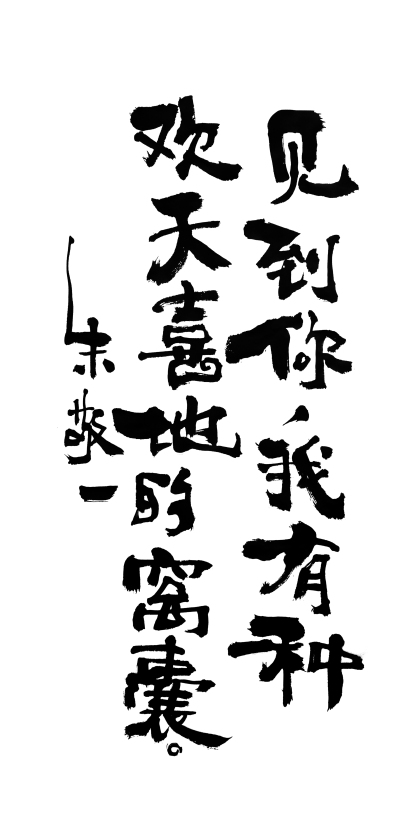 见到你我有种
欢天喜地的窝囊。
朱敬一